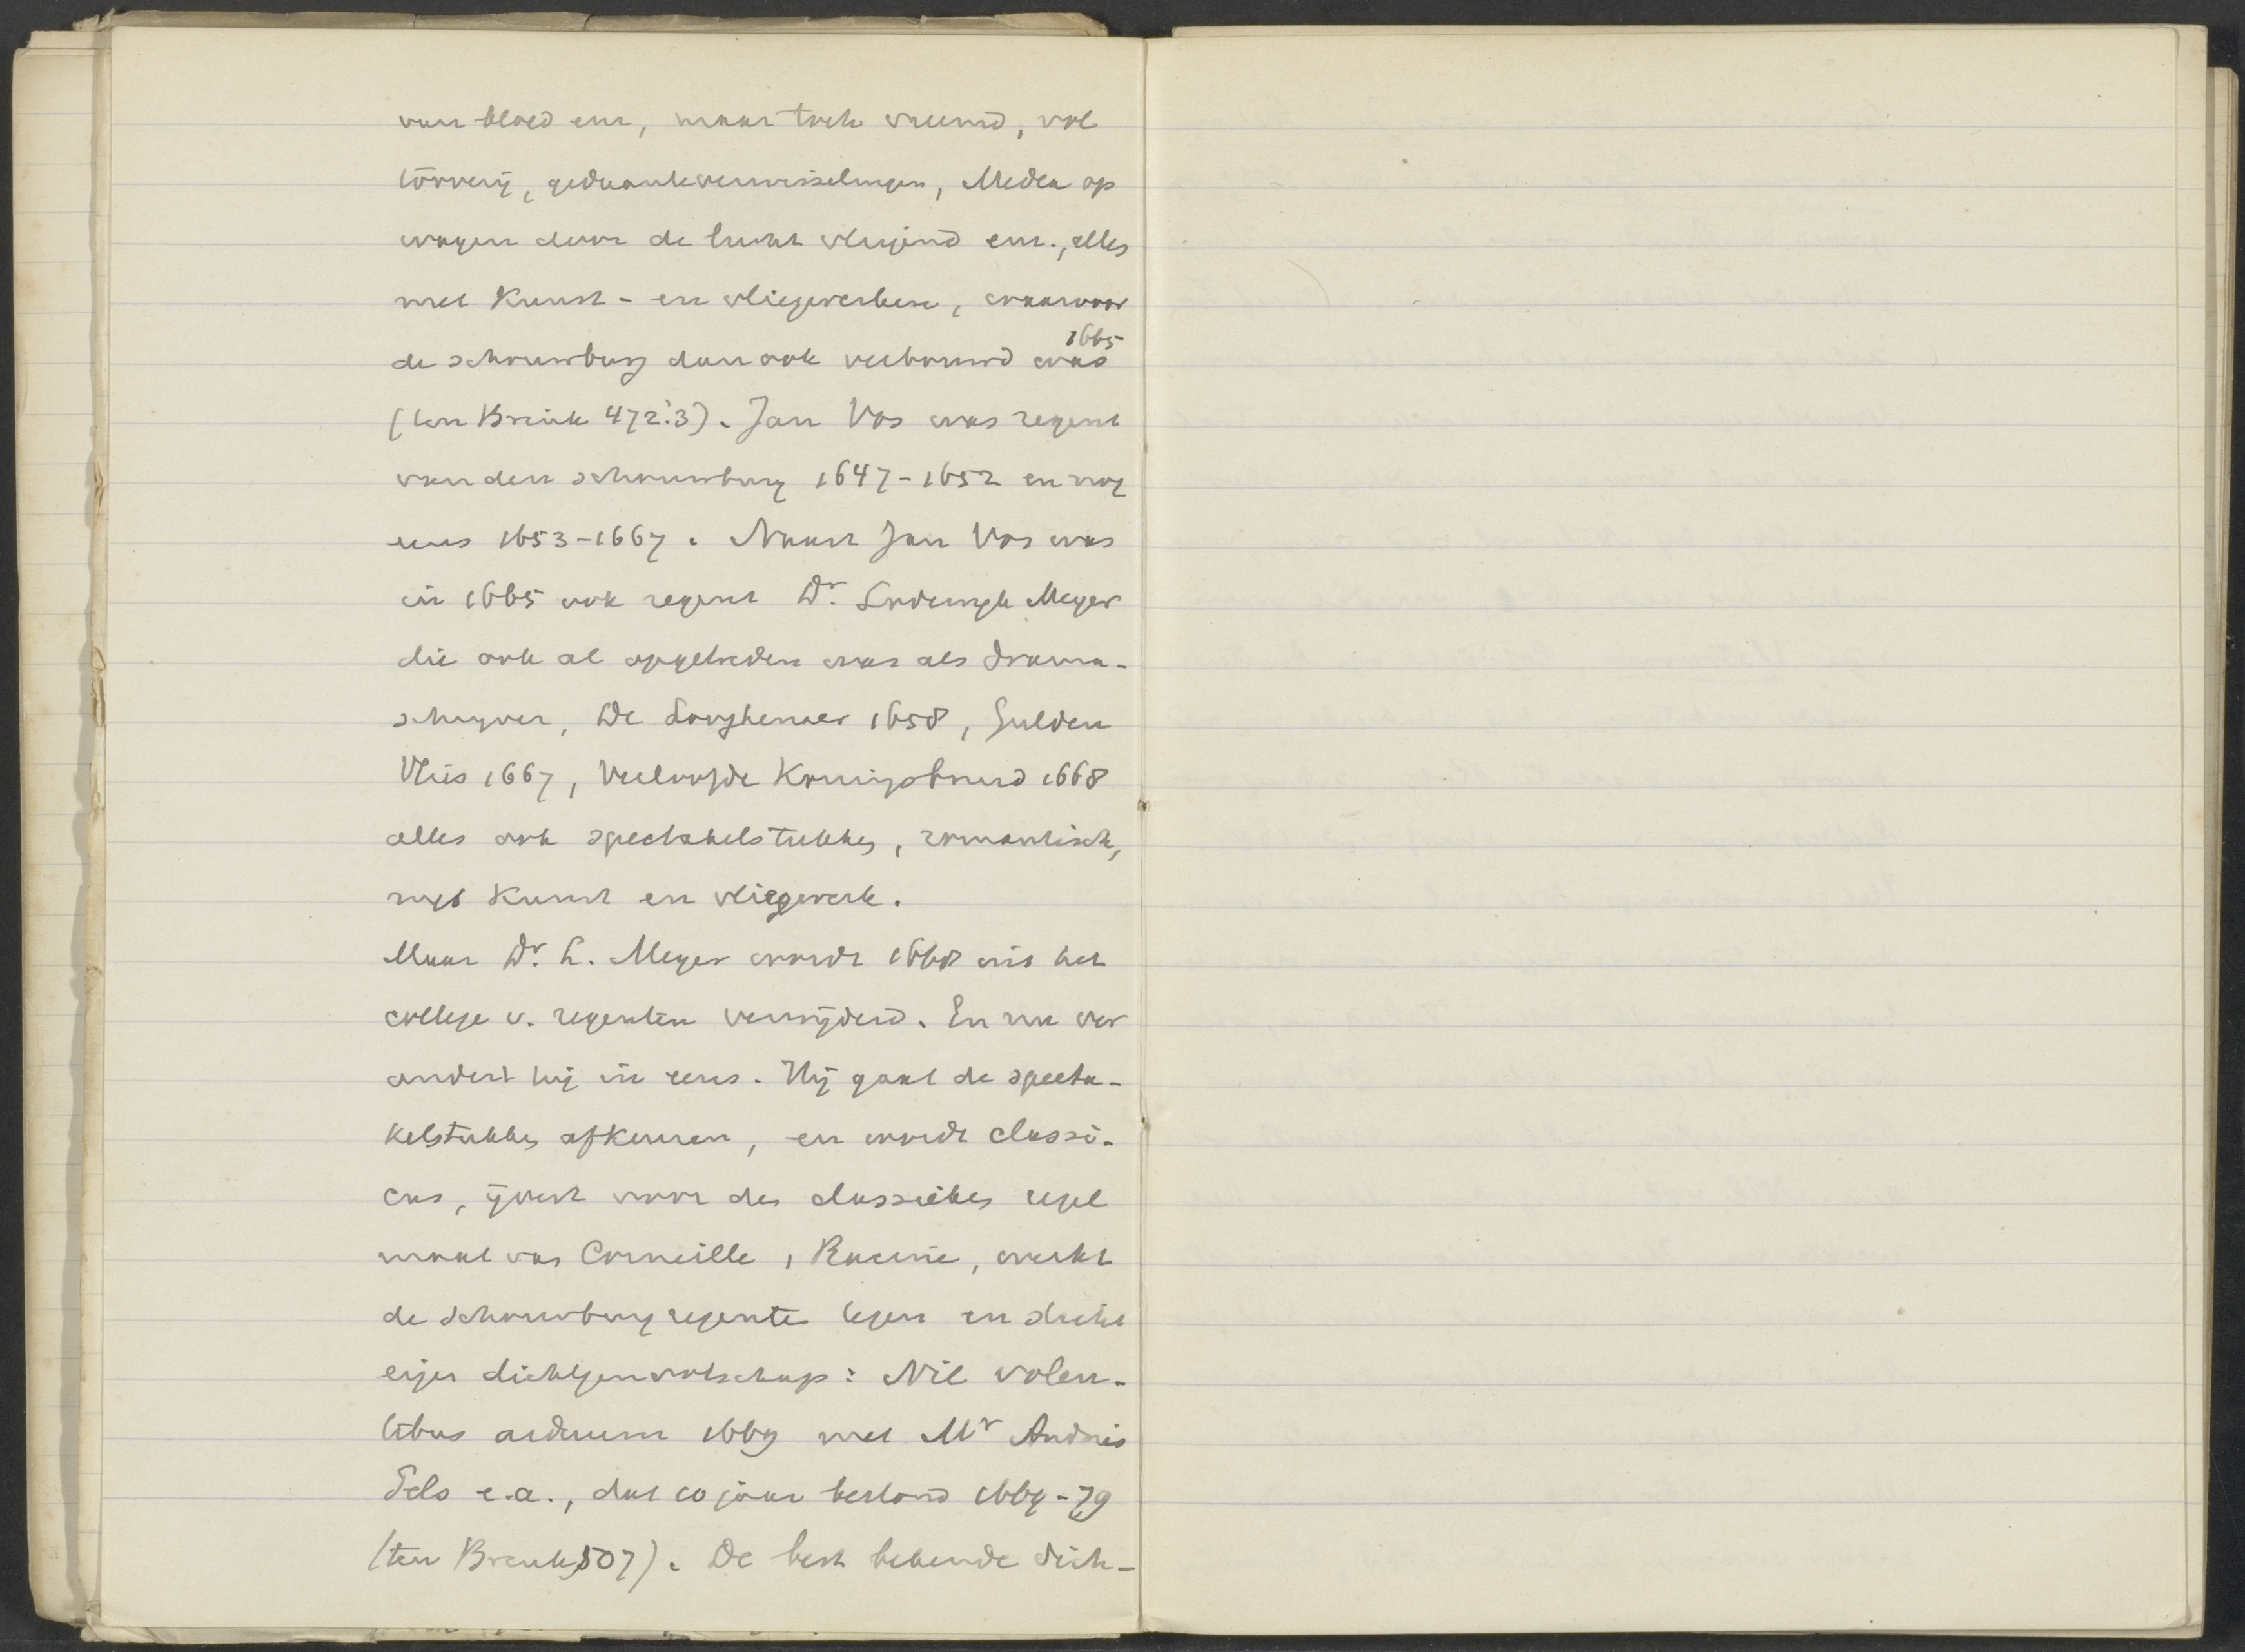 van bloed enz, maar toch vreemd, vol
tooverij, gedaanteverwisselingen, Medea op
wagen door de lucht vliegend enz., alles
met Kunst- en vliegwerken, waarvoor
1665
de schouwburg dan ook verbouwd was
(ten Brink 472.3). Jan Vos was regent
van den schouwburg 1647-1652 en nog
eens 1653-1667. Naast Jan Vos was
in 1665 ook regent Dr. Lodewijk Meyer
die ook al opgetreden was als drama-
schrijver, De Looghenaer 1658, Gulden
Vlies 1667, Verloofde Koningsbruid 1668
alles ook spectakelstukken, romantisch,
met Kunst en vliegwerk.
Maar Dr. L. Meyer wordt 1668 uit het
college v. regenten verwijderd. En nu ver
andert hij in eens. Hij gaat de specta-
kelstukken afkeuren, en wordt classi-
cus, ijvert voor de classieke regel
maat van Corneille, Racine, werkt
de schouwburgregenten tegen en sticht
eigen dichtgenootschap: Nil volen-
tibus arduum 1669 met Mr Andries
Pels e.a., dat 10 jaar bestond 1669-79
(ten Brink, 507). De best bekende dich-